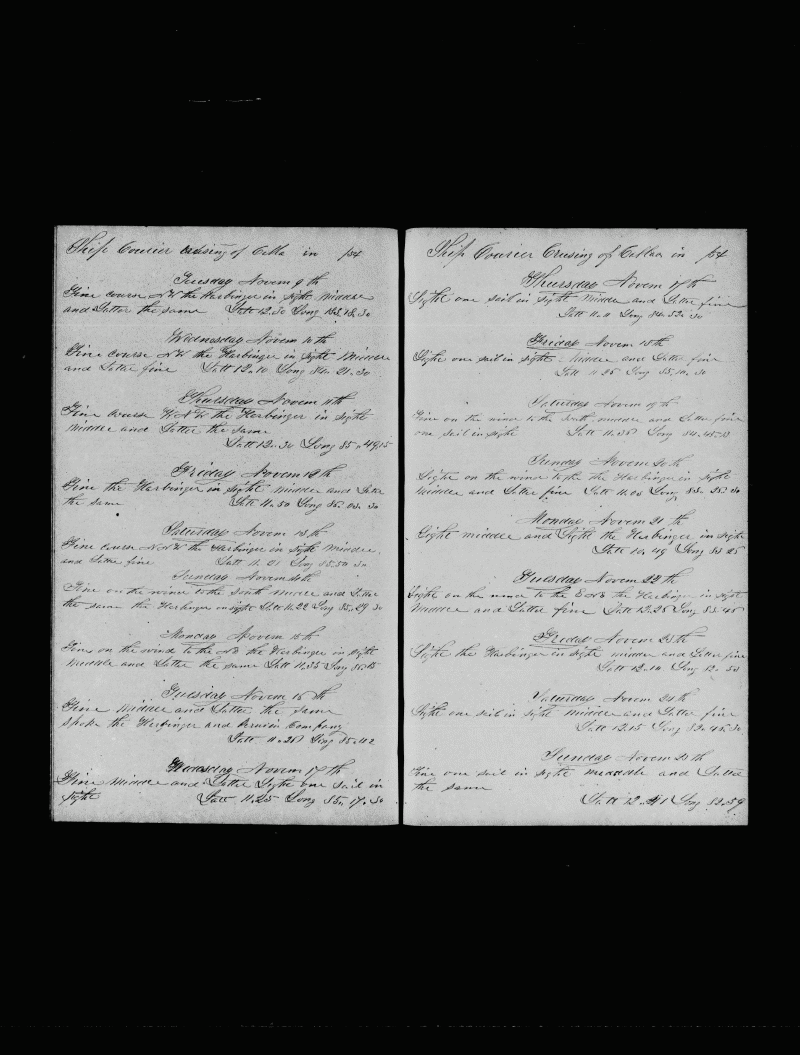 Ship Courier Crusing of in
Tuesday Novem 9th
Fine course NW the Harbinger in sight middle
and Latter the same Latt 12.30 Long
Wednesday Novem 10th
Fine course NW the Harbinger in sight middle
and Latter fine Latt 12.10 Long 84.21.30
Thursday Novem 11th
Fine course WNW the Harbinger in sight
middle and Latter the same
Latt 12.30 Long 85.49.15
Friday Novem 12th
Fine the Harbinger in sight middle and Latter
the same Latt 11.50 Long 86.03.30
Saturday Novem 13th
Fine course NNW the Harbinger in sight middle
and Latter fine Latt 11.01 Long 85.50.30
Sunday Novem 14th
Fine on the wind to the South middle and Latter
the same the Harbinger in sight Latt 11.22 Long 85.29.30
Monday Novem 15th
Fine on the wind to the NE the Harbinger in sight
middle and Latter the same Latt 11.35 Long 86.15
Tuesday Novem 16th
Fine middle and Latter the same
Spoke the Harbinger and Company
Latt 11.26 Long 85.42
Novem 17th
Fine middle and Latter Light one Sail in
sight Latt 11.25 Long 85.17.30
Ship Courier Crusing of in
Thursday Novem 17th
Light one sail in sight middle and Latter fine
Latt 11.11 Long 84.52.30
Friday Novem 18th
Light one sail in sight middle and Latter fine
Latt 11.25 Long 85.10.30
Saturday Novem 19th
Fine on the wind to the South middle and Latter fine
one sail in sight Latt 11.35 Long 84.45.15
Sunday Novem 20th
Light on the wind to the Harbinger in sight
middle and Latter fine Latt 11.05 Long 83.25.30
Monday Novem 21th
Light middle and Light the Harbinger in sight
Latt 10.49 Long 83.25
Tuesday Novem 22th
Light on the wind to the the Harbinger in sight
middle and Latter fine Latt 12.26 Long 83.45
Friday Novem 23th
Light the Harbinger in sight middle and Latter fine
Latt 12.10 Long 12.50
Saturday Novem 24th
Light one sail in sight middle and Latter fine
Latt 12.15 Long 82.45.30
Sunday Novem 25th
Fine one sail in sight middle and Latter
the same
Latt 12.41 Long 82.59